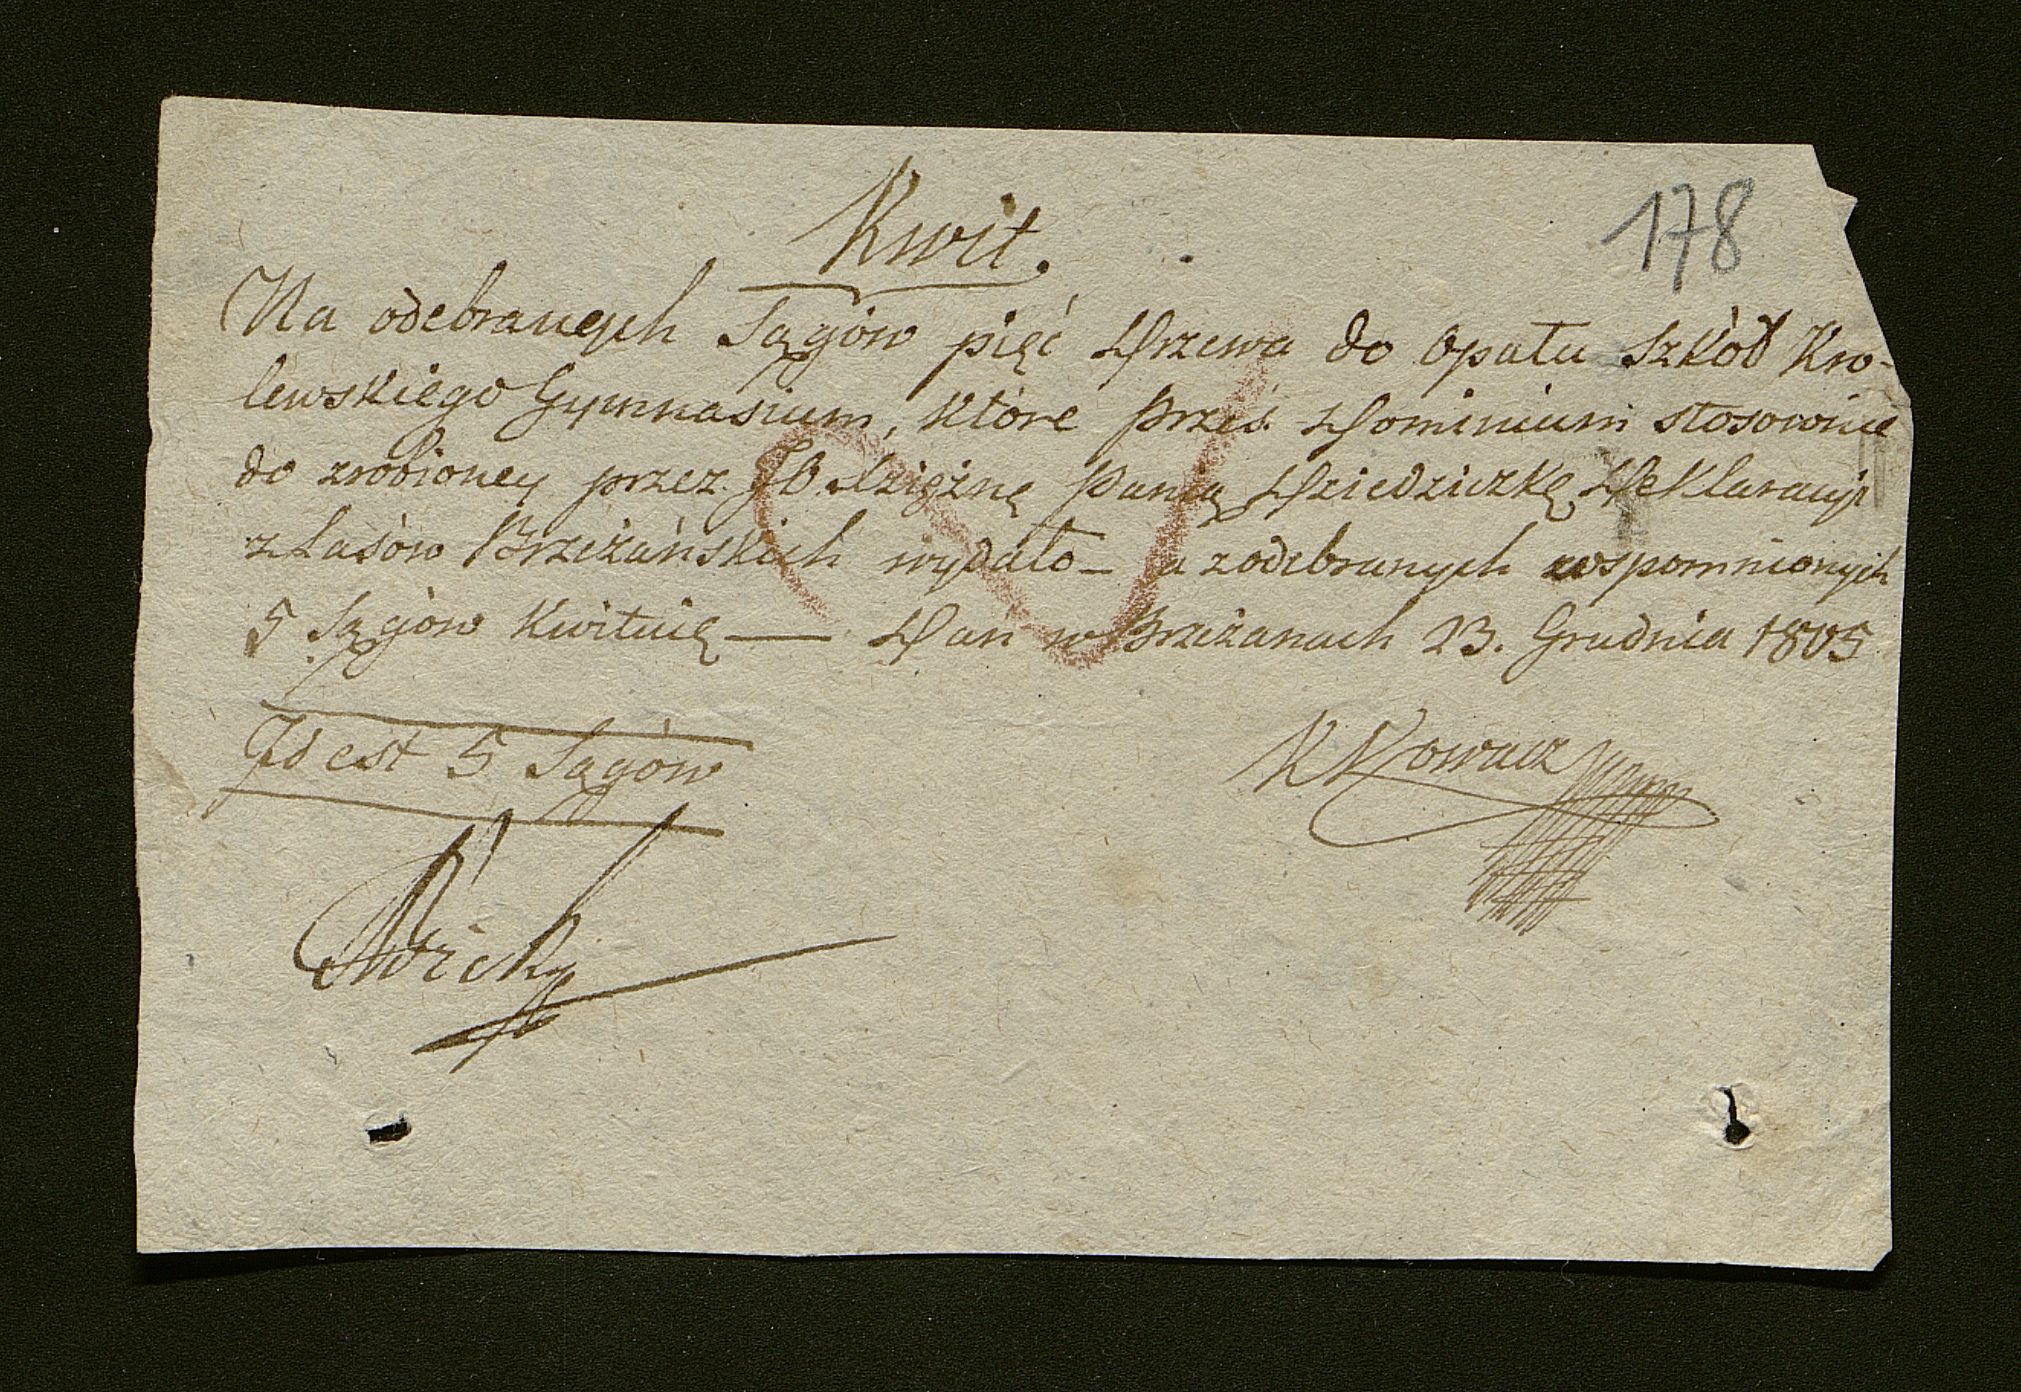 178
Kwit.
Na odebranych Sągów pięć Drzewa do Opału Szkół Kro-
lewskiego Gymnasium, które przeż Dominium stosownie
do zrobioney przez JO. Xziężnę Panią Dziedziczkę Deklaracyi
z Lasów Brzeżańskich wydało – a z odebranych wspomnionych
5 Sągów Kwituię — Dan w Brzeżanach 23. Grudnia 1805
Id est 5 Sągów